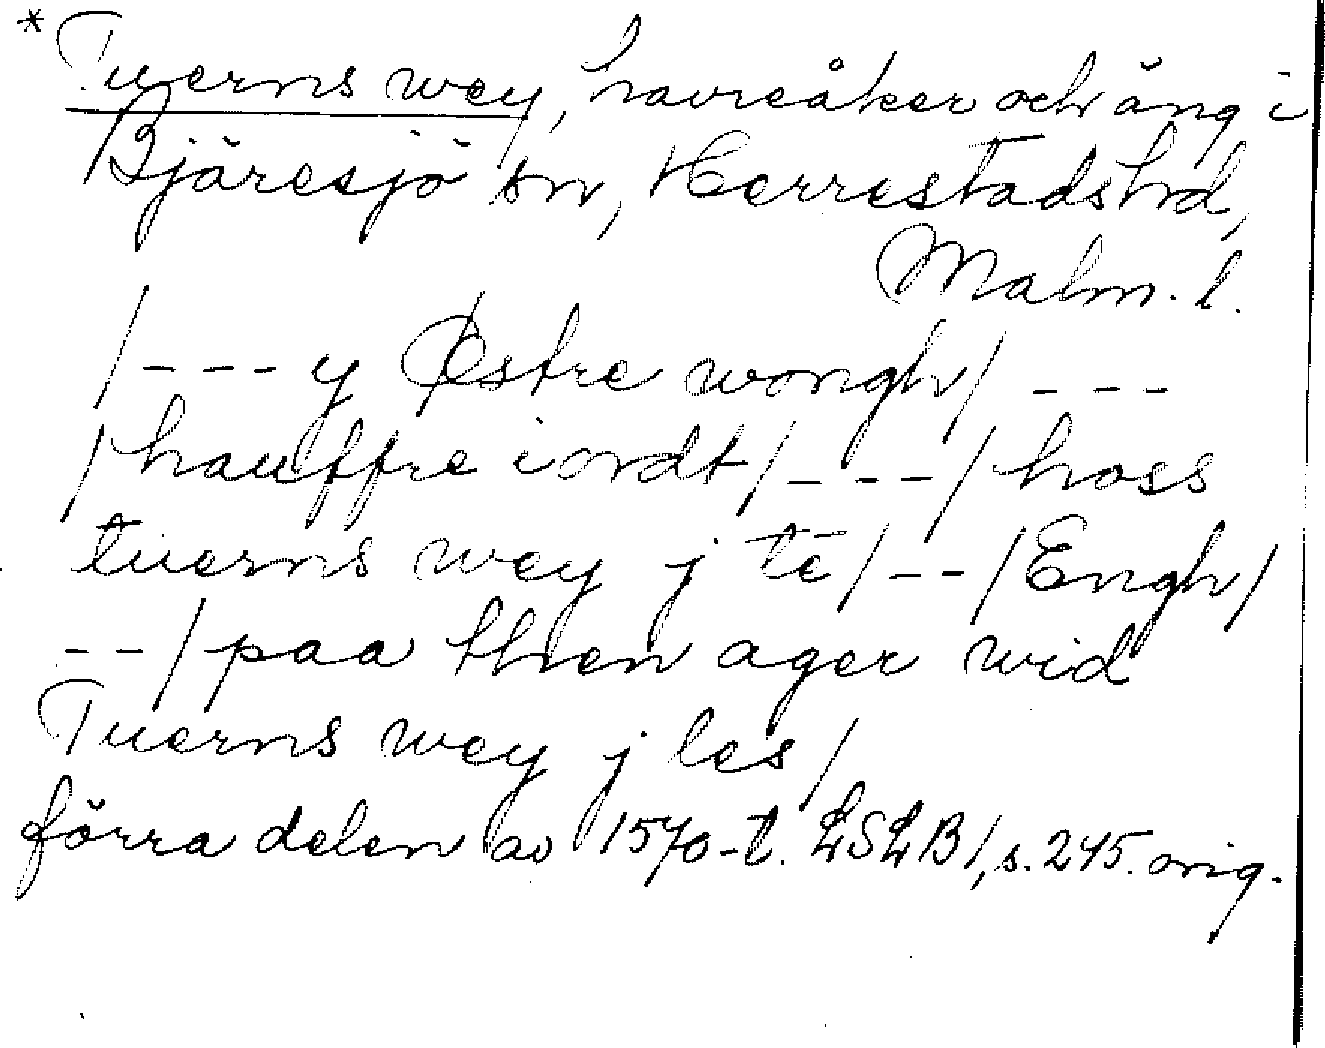 *Tuerns wey, havreåker och äng i
Bjäresjö sn, Herrestads hd,
Malm. l.
/---y Østre wongh/ ---
/hauffre iordt/---/hoss
tuerns wey j te/--/Engh/
--/paa then ager wid
Tuerns wey j les/
förra delen av 1570-t. LSLB1, s. 245. orig.